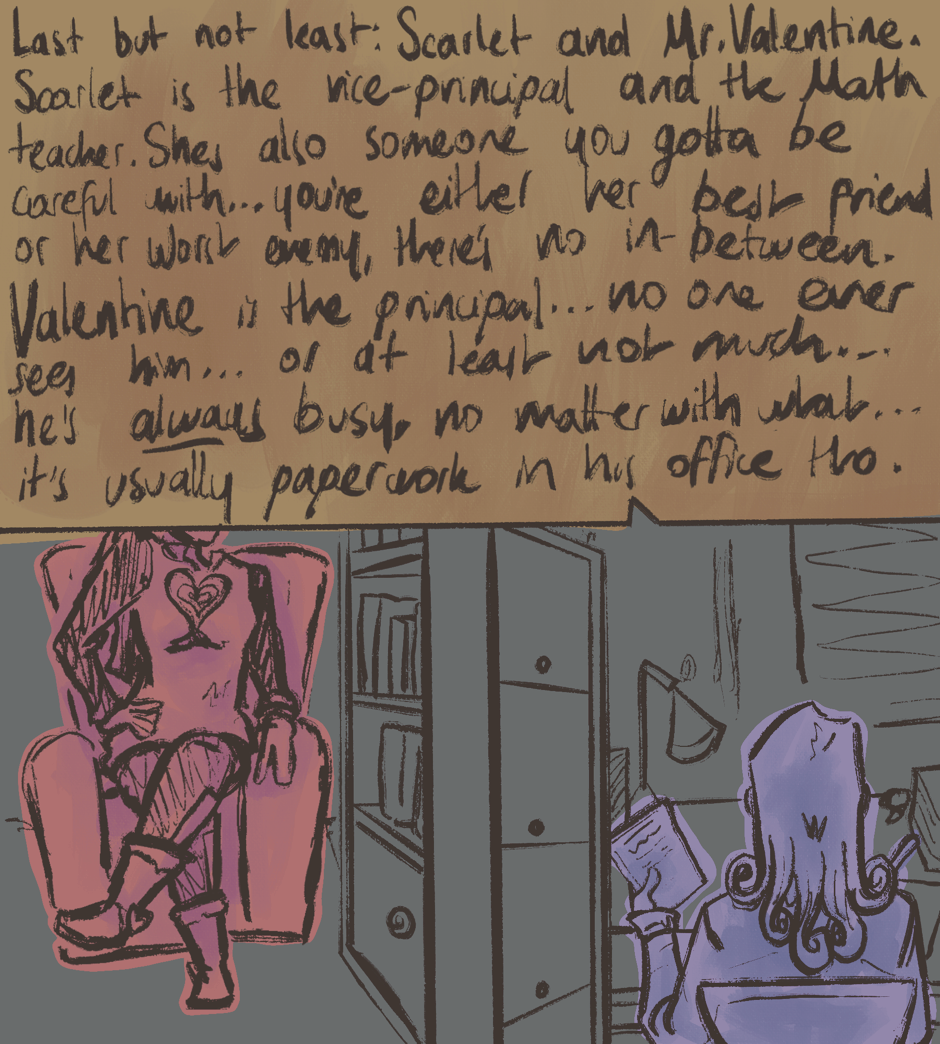 Last but not least: Scarlet and Mr. Valentine.
Scarlet is the vice-principal and the Math
teacher. Shes also someone you gotta be
careful with... you're either her best friend
or her worst enemy, there's no in-between.
Valentine is the principal... no one ever
sees him... or at least not much...
he's always busy, no matter with what...
it's usually paperwork in his office tho.